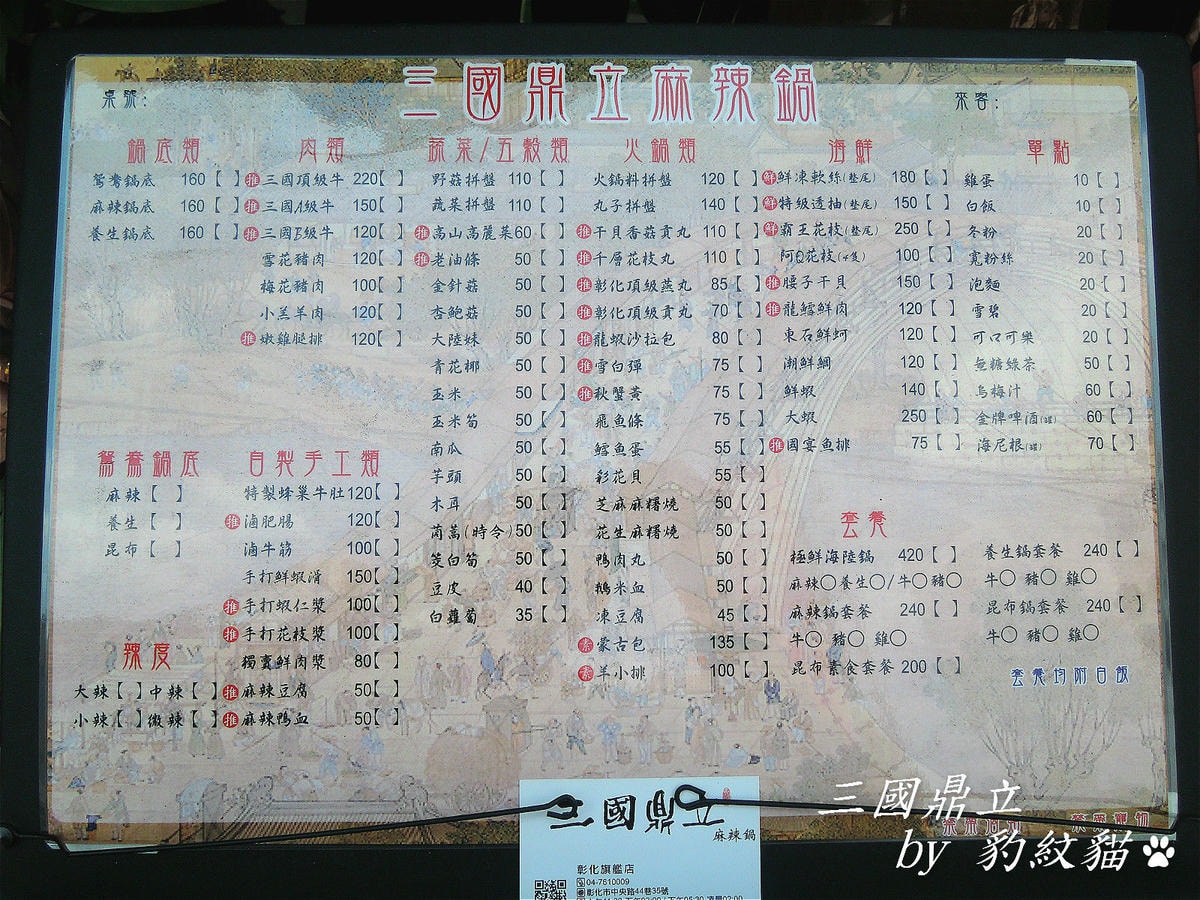 三國鼎立麻辣鍋
桌號:
來客:
鍋底類
鴛鴦鍋底 160【 】
麻辣鍋底 160【 】
養生鍋底 160【 】
鴛鴦鍋底
麻辣【 】
養生【 】
昆布【 】
辣度
大辣【 】中辣【 】
小辣【 】微辣【 】
肉類
推 三國頂級牛 220【 】
推 三國A級牛 150【 】
推 三國B級牛 120【 】
雪花豬肉 100【 】
梅花豬肉 100【 】
小羔羊肉 120【 】
推 嫩雞腿排 120【 】
自製手工類
特製蜂巢牛肚 120【 】
推 滷肥腸 120【 】
滷牛筋 100【 】
手打鮮蝦滑 150【 】
推 手打蝦仁漿 100【 】
推 手打花枝漿 100【 】
獨賣鮮肉漿 80【 】
推 麻辣豆腐 50【 】
推 麻辣鴨血 50【 】
蔬菜/五穀類
野菇拼盤 110【 】
蔬菜拼盤 110【 】
推 高山高麗菜 60【 】
推 老油條 50【 】
金針菇 50【 】
杏鮑菇 50【 】
大陸妹 50【 】
青花椰 50【 】
玉米 50【 】
玉米筍 50【 】
南瓜 50【 】
芋頭 50【 】
木耳 50【 】
茼蒿(時令) 50【 】
茭白筍 50【 】
豆皮 40【 】
白蘿蔔 35【 】
火鍋類
火鍋料拼盤 120【 】
丸子拼盤 140【 】
推 干貝香菇貢丸 110【 】
推 千層花枝丸 110【 】
推 彰化頂級燕丸 85【 】
推 彰化頂級貢丸 70【 】
推 龍蝦沙拉包 80【 】
推 雪白彈 75【 】
推 秋蟹黃 75【 】
飛魚條 75【 】
鱈魚蛋 55【 】
彩花貝 55【 】
芝麻麻糬燒 50【 】
花生麻糬燒 50【 】
鴨肉丸 50【 】
鵝米血 50【 】
凍豆腐 45【 】
素 蒙古包 135【 】
素 羊小排 100【 】
海鮮
鮮 鮮凍軟絲(墊尾) 180【 】
鮮 特級透抽(墊尾) 150【 】
鮮 霸王花枝(墊尾) 250【 】
阿Q花枝(4隻) 100【 】
推 腰子干貝 150【 】
推 龍鱈鮮肉 120【 】
東石鮮蚵 120【 】
潮鮮鯛 120【 】
鮮蝦 140【 】
大蝦 250【 】
推 國宴魚排 75【 】
單點
雞蛋 10【 】
白飯 10【 】
冬粉 20【 】
寬粉絲 20【 】
泡麵 20【 】
雪碧 20【 】
可口可樂 20【 】
無糖綠茶 50【 】
烏梅汁 60【 】
金牌啤酒(罐) 60【 】
海尼根(罐) 70【 】
套餐
極鮮海陸鍋 420【 】
麻辣○養生○/牛○豬○
麻辣鍋套餐 240【 】
牛○ 豬○ 雞○
昆布素食套餐 200【 】
養生鍋套餐 240【 】
牛○ 豬○ 雞○
昆布鍋套餐 240【 】
牛○ 豬○ 雞○
套餐均附白飯
三國鼎立
麻辣鍋
彰化旗艦店
04-7610009
彰化市中央路44巷35號
三國鼎立
by 豹紋貓